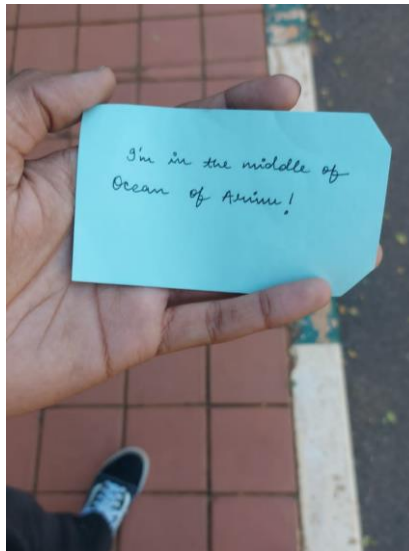 I'm in the middle of
Ocean of !